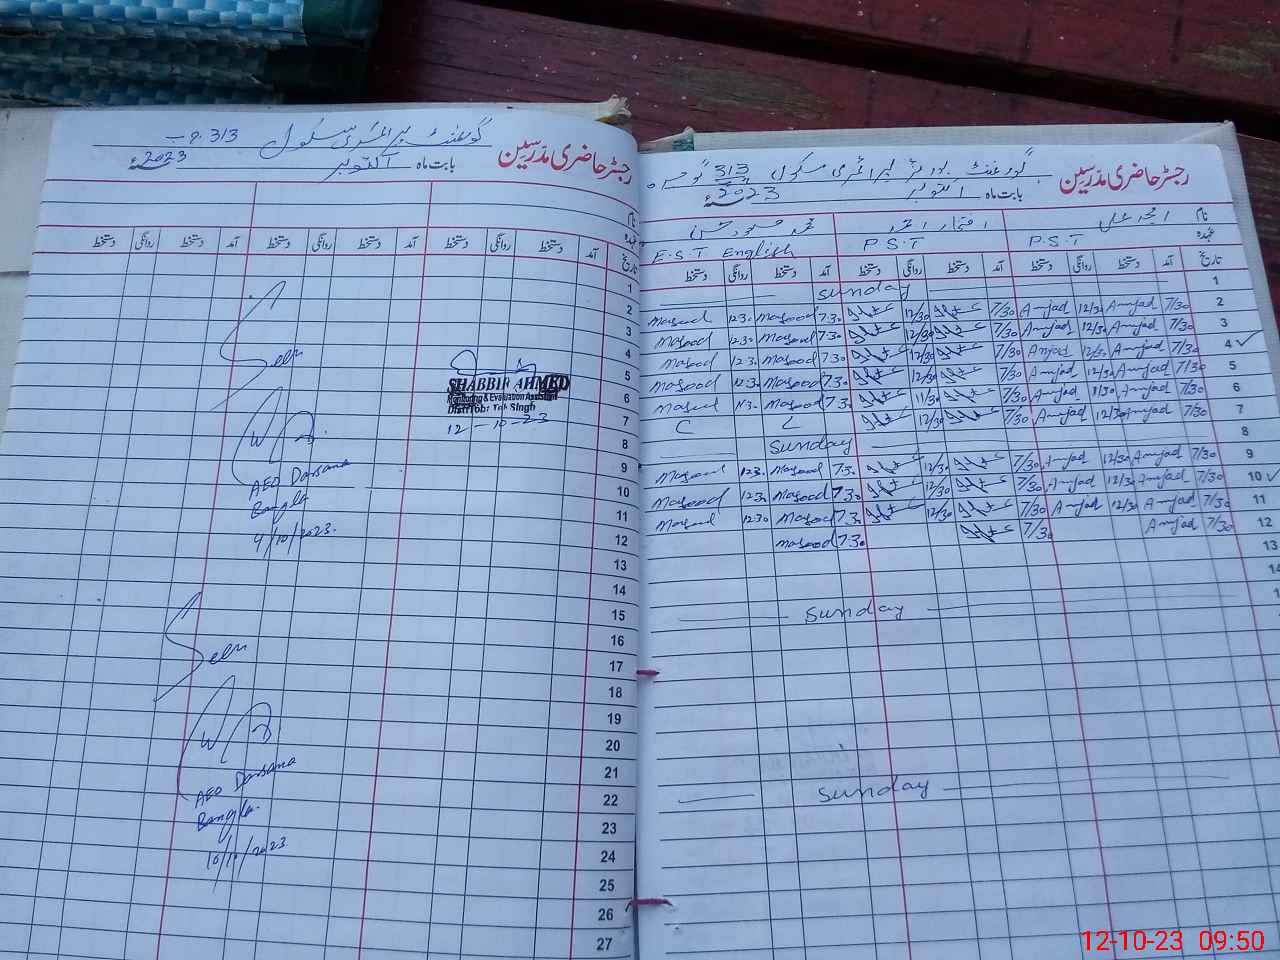 رجسٹر حاضری مدرسین
گورنمنٹ پرائمری سکول 313 گ ب
بابت ماہ اکتوبر 2023ء
نام
عہدہ
تاریخ آمد دستخط روانگی دستخط آمد دستخط روانگی دستخط آمد دستخط روانگی دستخط
1
2
3
4
5
6
7
8
9
10
11
12
13
14
15
16
17
18
19
20
21
22
23
24
25
26
27
Seen
SHABBIR AHMED
Monitoring & Evaluation Assistant
Distt Tob: Tek Singh
12-10-23
AEO Darsana
Bangla
4/10/2023.
Seen
AEO Darsana
Bangla.
10/10/2023
رجسٹر حاضری مدرسین
گورنمنٹ پرائمری سکول 313
بابت ماہ اکتوبر 2023ء
نام امجد علی افتخار احمد محمد مسعود حسن
عہدہ P.S.T P.S.T E.S.T English
تاریخ آمد دستخط روانگی دستخط آمد دستخط روانگی دستخط آمد دستخط روانگی دستخط
1 Sunday
2 7/30 Amjad 12/30 Amjad 7/30 12/30 7.30 Masood 12.30 Masood
3 7/30 Amjad 12/30 Amjad 7/30 12/30 7.30 Masood 12.30 Masood
4 7/30 Amjad 12/30 Amjad 7/30 12/30 7.30 Masood 12.30 Masood
5 7/30 Amjad 12/30 Amjad 7/30 12/30 7.30 Masood 12.30 Masood
6 7/30 Amjad 11/30 Amjad 7/30 11/30 7.30 Masood 11.30 Masood
7 7/30 Amjad 12/30 Amjad 7/30 12/30 L C
8 Sunday
9 7/30 Amjad 12/30 Amjad 7/30 12/30 7.30 Masood 12.30 Masood
10 7/30 Amjad 12/30 Amjad 7/30 12/30 7.30 Masood 12.30 Masood
11 7/30 Amjad 12/30 Amjad 7/30 12/30 7.30 Masood 12.30 Masood
12 7/30 Amjad 7/30 7.30 Masood
13
14
Sunday
Sunday
12-10-23 09:50